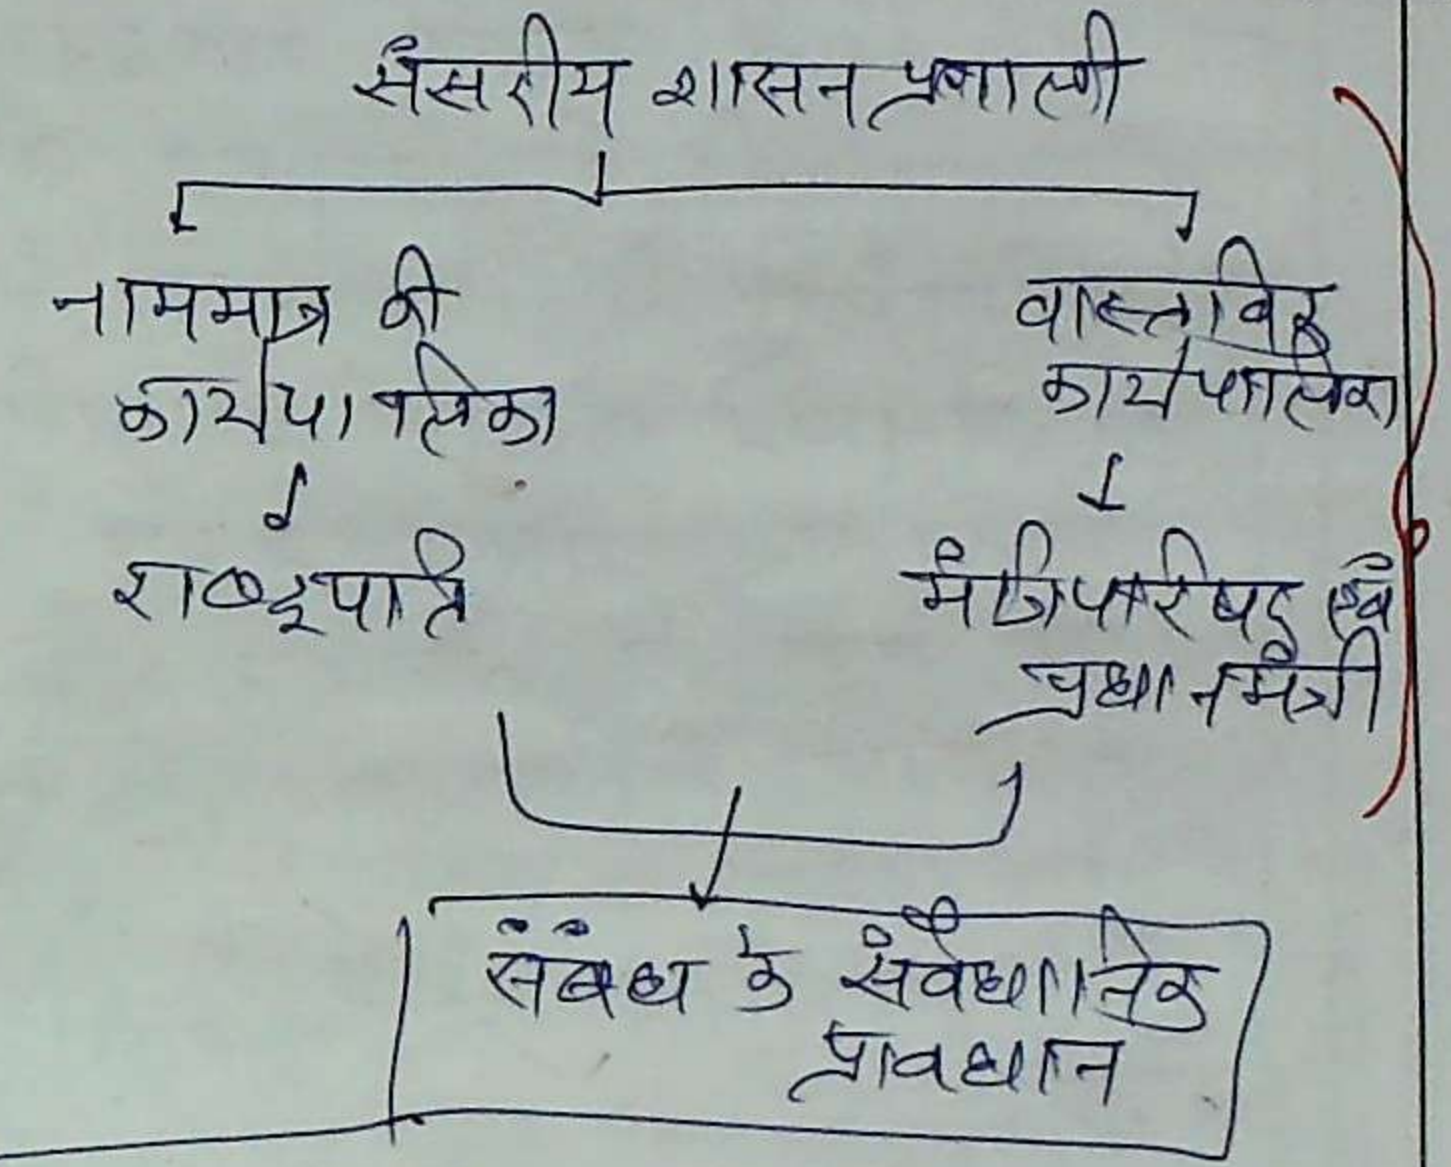 संसदीय शासन प्रणाली
नाममात्र की
कार्यपालिका
वास्तविक
कार्यपालिका
राष्ट्रपति
मंत्रिपरिषद एवं
प्रधानमंत्री
संबंध के संवैधानिक
प्रावधान